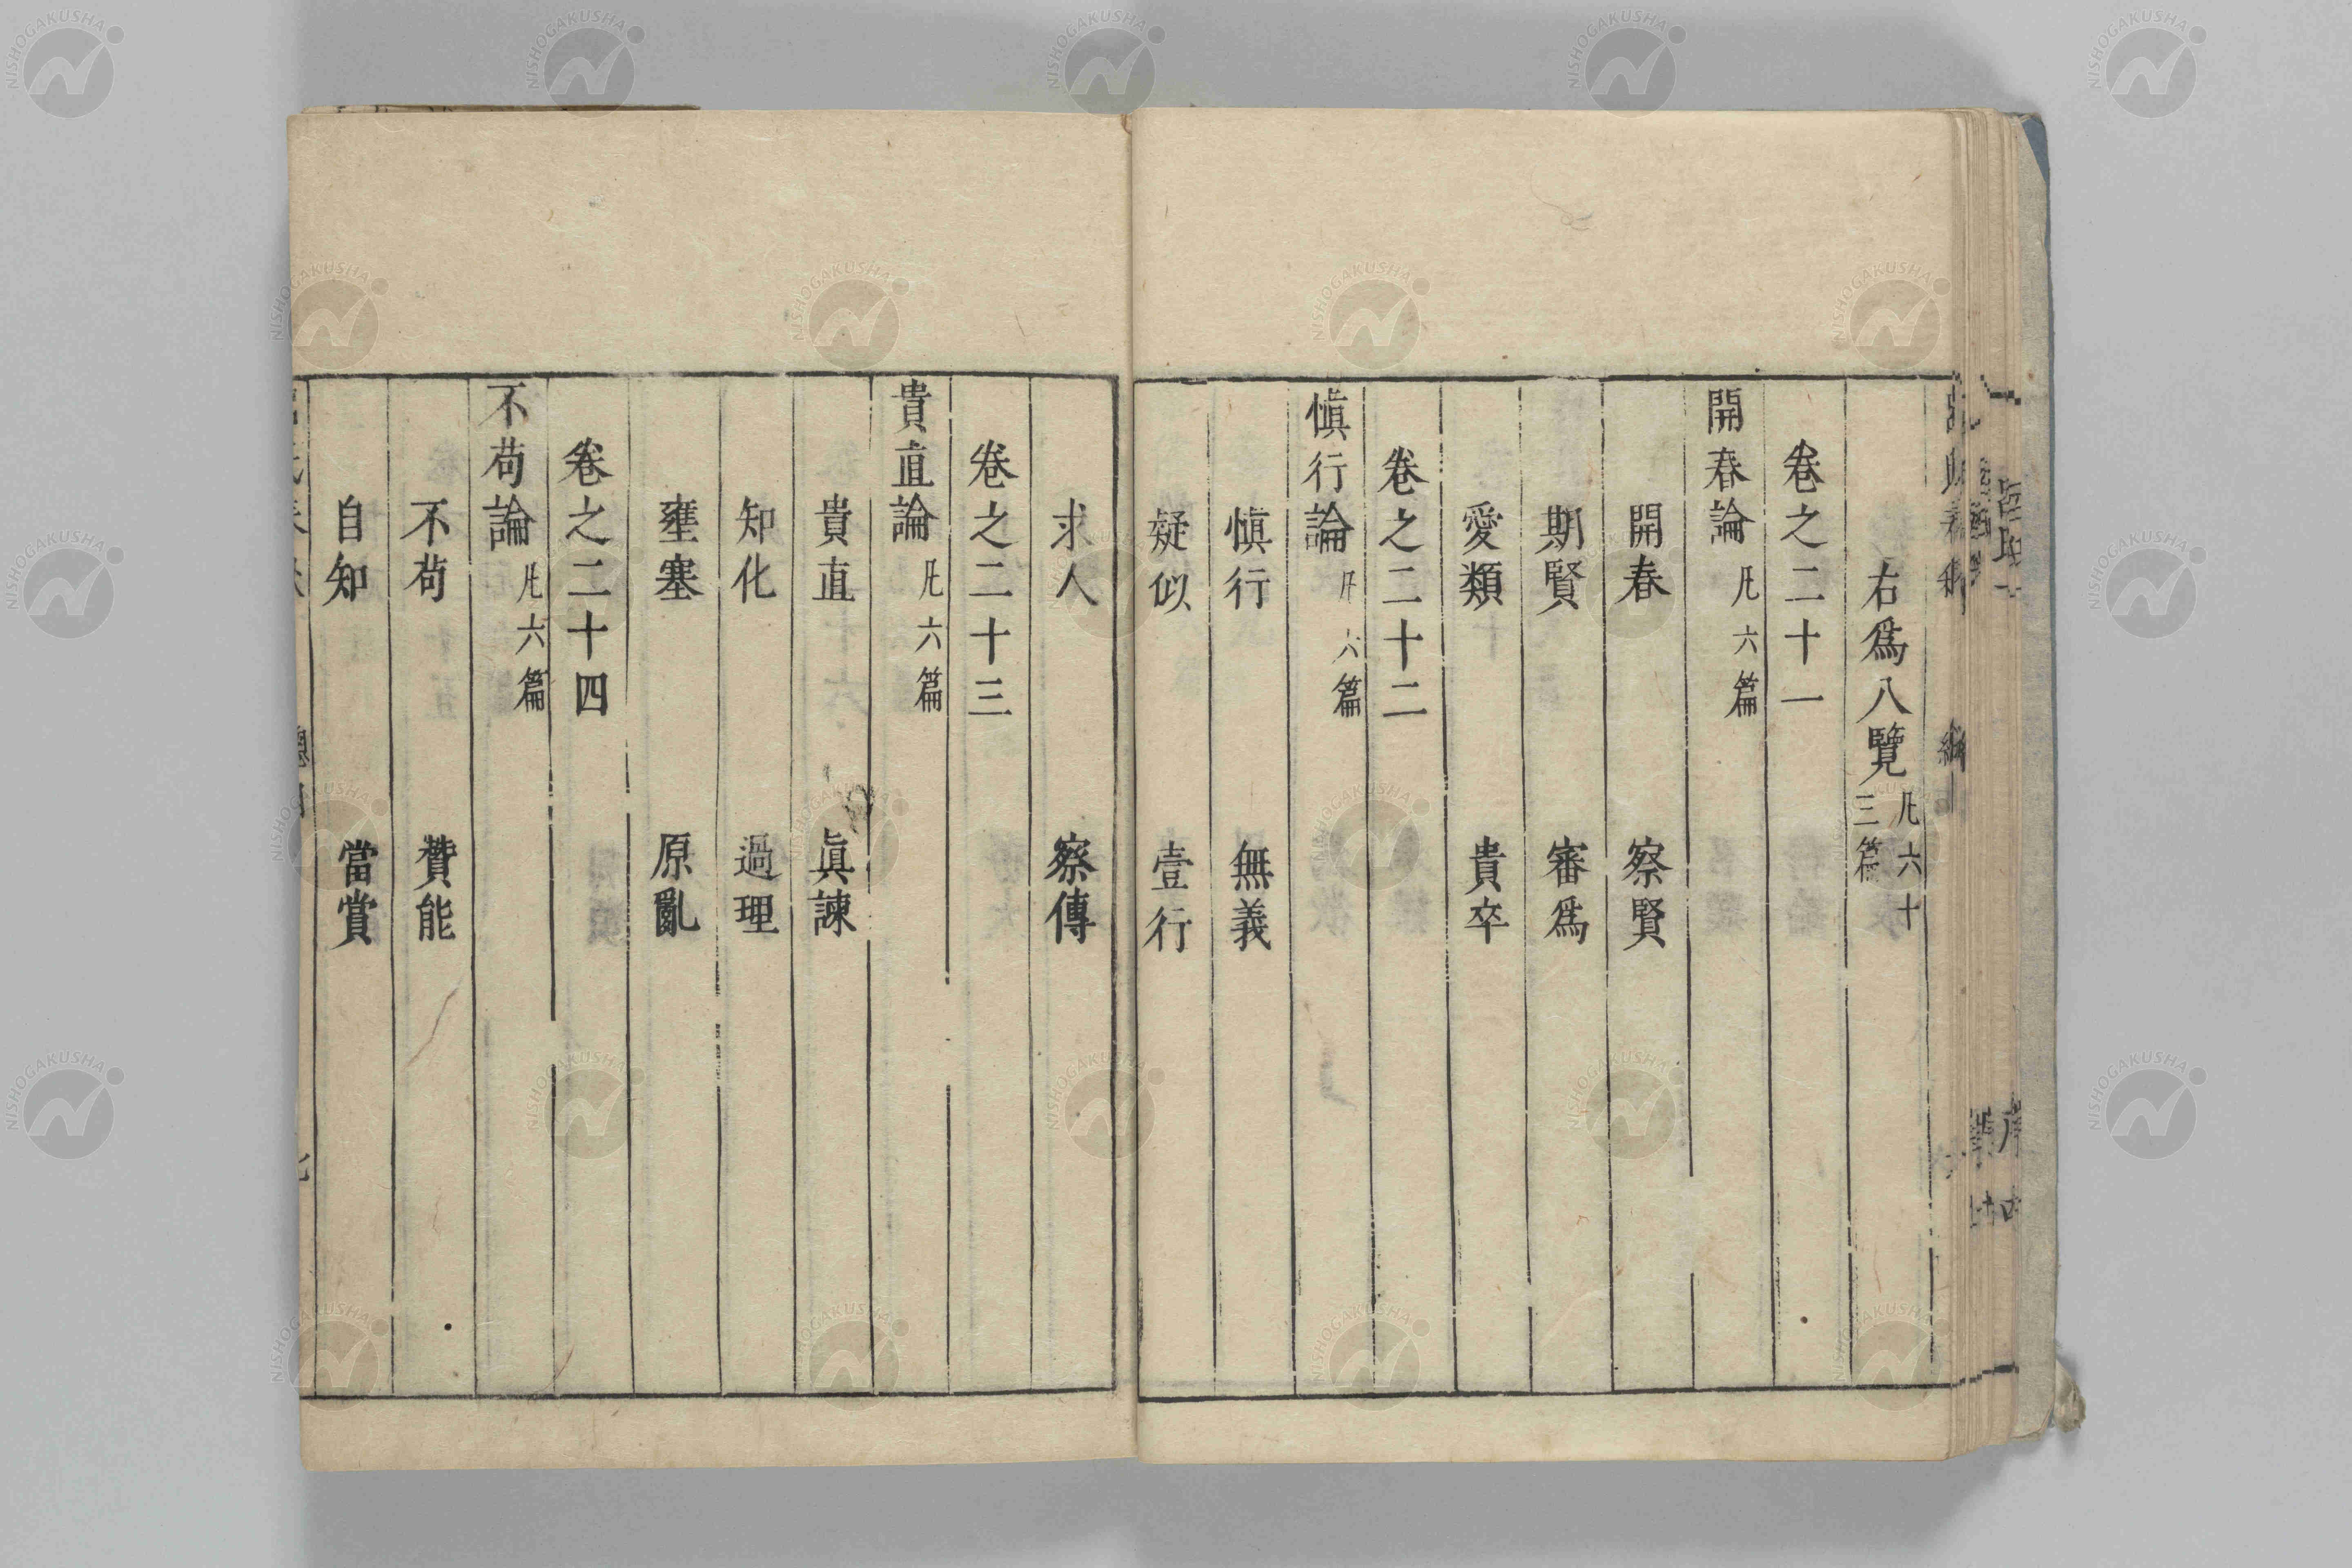 右爲八覽凡六十三篇
卷之二十一
開春論凡六篇
開春 察賢
期賢 審爲
愛類 貴卒
卷之二十二
愼行論凡六篇
愼行 無義
疑似 壹行
求人 察傳
卷之二十三
貴直論凡六篇
貴直 眞諫
知化 過理
壅塞 原亂
卷之二十四
不苟論凡六篇
不苟 贊能
自知 當賞
NISHOGAKUSHA